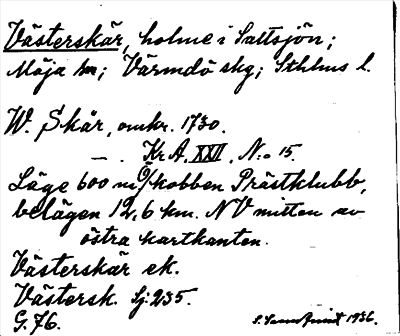 Västerskär, holme i Saltsjön;
Möja sn; Värmdö skg; Sthlms l.
W. Skär, omkr. 1730.
— . Kr. A. XXII, N:o 15.
Läge 600 m O/kobben Prästklubb,
belägen 12,6 km. NV mitten av
östra kartkanten.
Västerskär ek.
Västersk. Sj: 235.
G. 76.
1936.